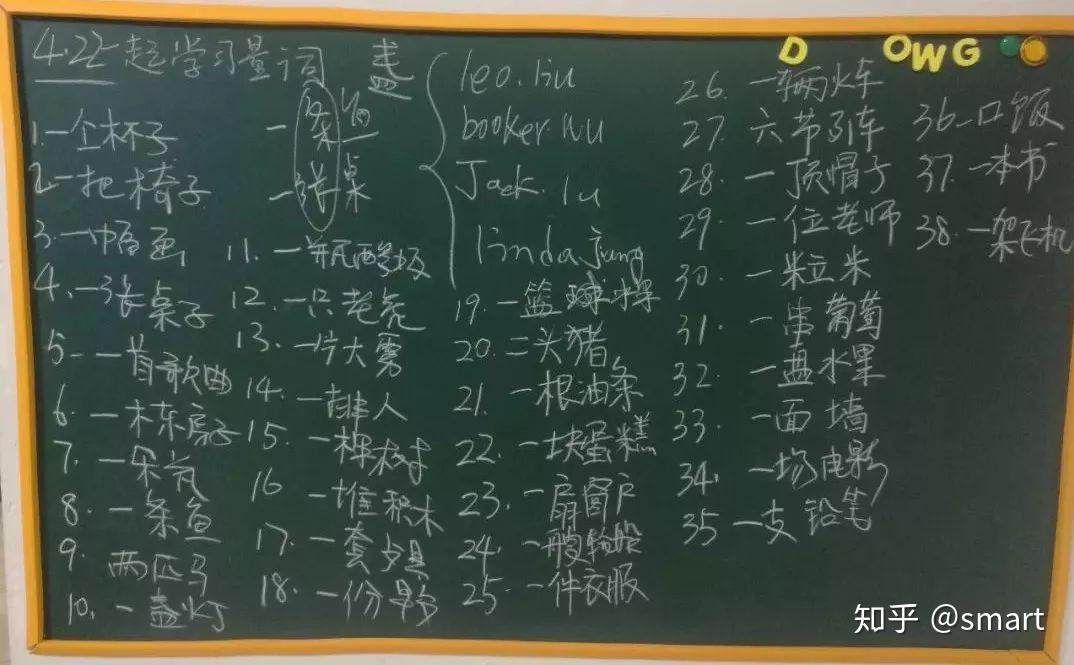 4.22 一起学习量词 盏
D OWG
一条鱼
一张桌
leo.liu
booker.wu
Jack.lu
linda jung
1.一个杯子
2.一把椅子
3.一幅画
4.一张桌子
5.一首歌曲
6.一栋房子
7.一朵花
8.一条鱼
9.两匹马
10.一盏灯
11.一瓶酸奶
12.一只老虎
13.一片大雾
14.一排人
15.一棵树
16 一堆积木
17.一套
18.一份
19.一篮
20.二头猪
21.一根油条
22.一块蛋糕
23.一扇窗户
24.一艘轮船
25.一件衣服
26.一辆火车
27.六节列车
28.一顶帽子
29.一位老师
30.一粒米
31.一串葡萄
32.一盘水果
33.一面墙
34.一场电影
35 一支铅笔
36.一口饭
37.一本书
38.一架飞机
知乎 @smart